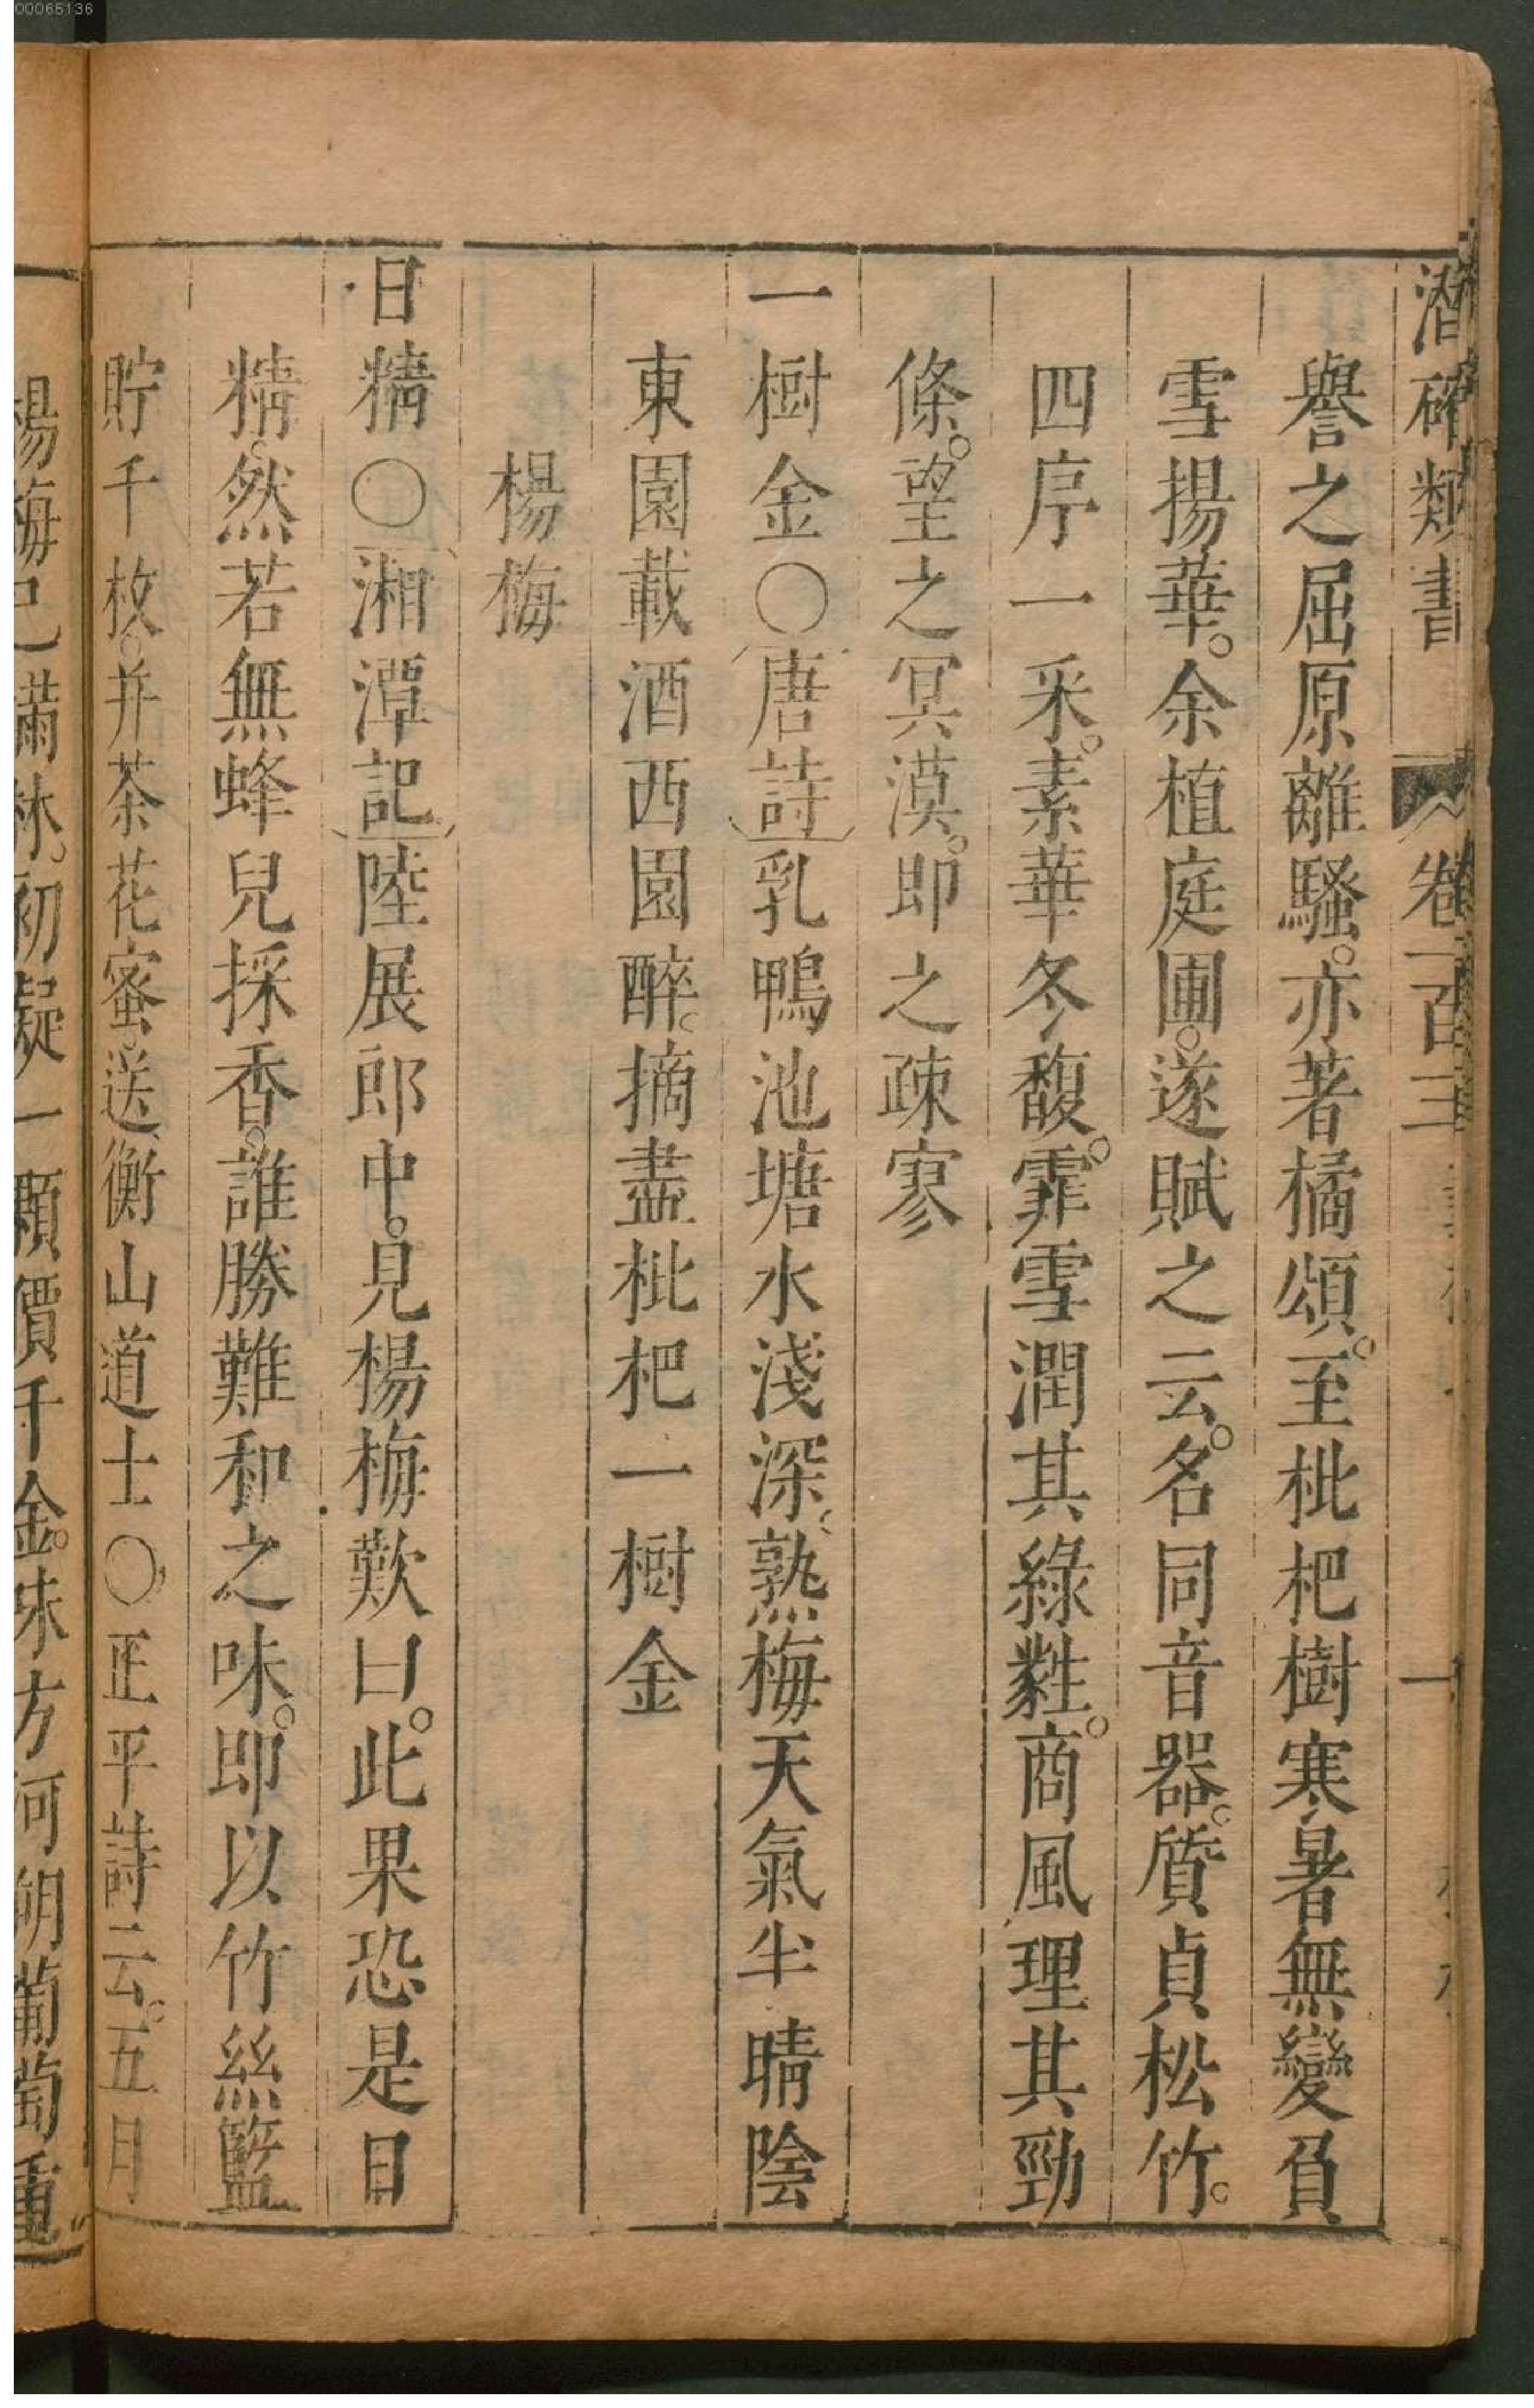 00065136
潛確類書 卷一百三 一
譽之屈原離騷。亦著橘頌。至枇杷樹寒暑無變負
雪揚華。余植庭圃。遂賦之云。名同音器。質貞松竹。
四序一采。素華冬馥。霏雪潤其綠蘳。商風理其勁
條。望之冥漠。即之疎寥
一樹金○唐詩乳鴨池塘水淺深、熟梅天氣半晴陰
東園載酒西園醉。摘盡枇杷一樹金
楊梅
日精○湘潭記陸展郎中。見楊梅歎曰。此果恐是日
精。然若無蜂兒採香。誰勝難和之味。即以竹絲籃
貯千枚。并茶花蜜。送衡山道士○正平詩云。五月
楊梅已滿林。初疑一顆價千金。味方河朔葡萄重